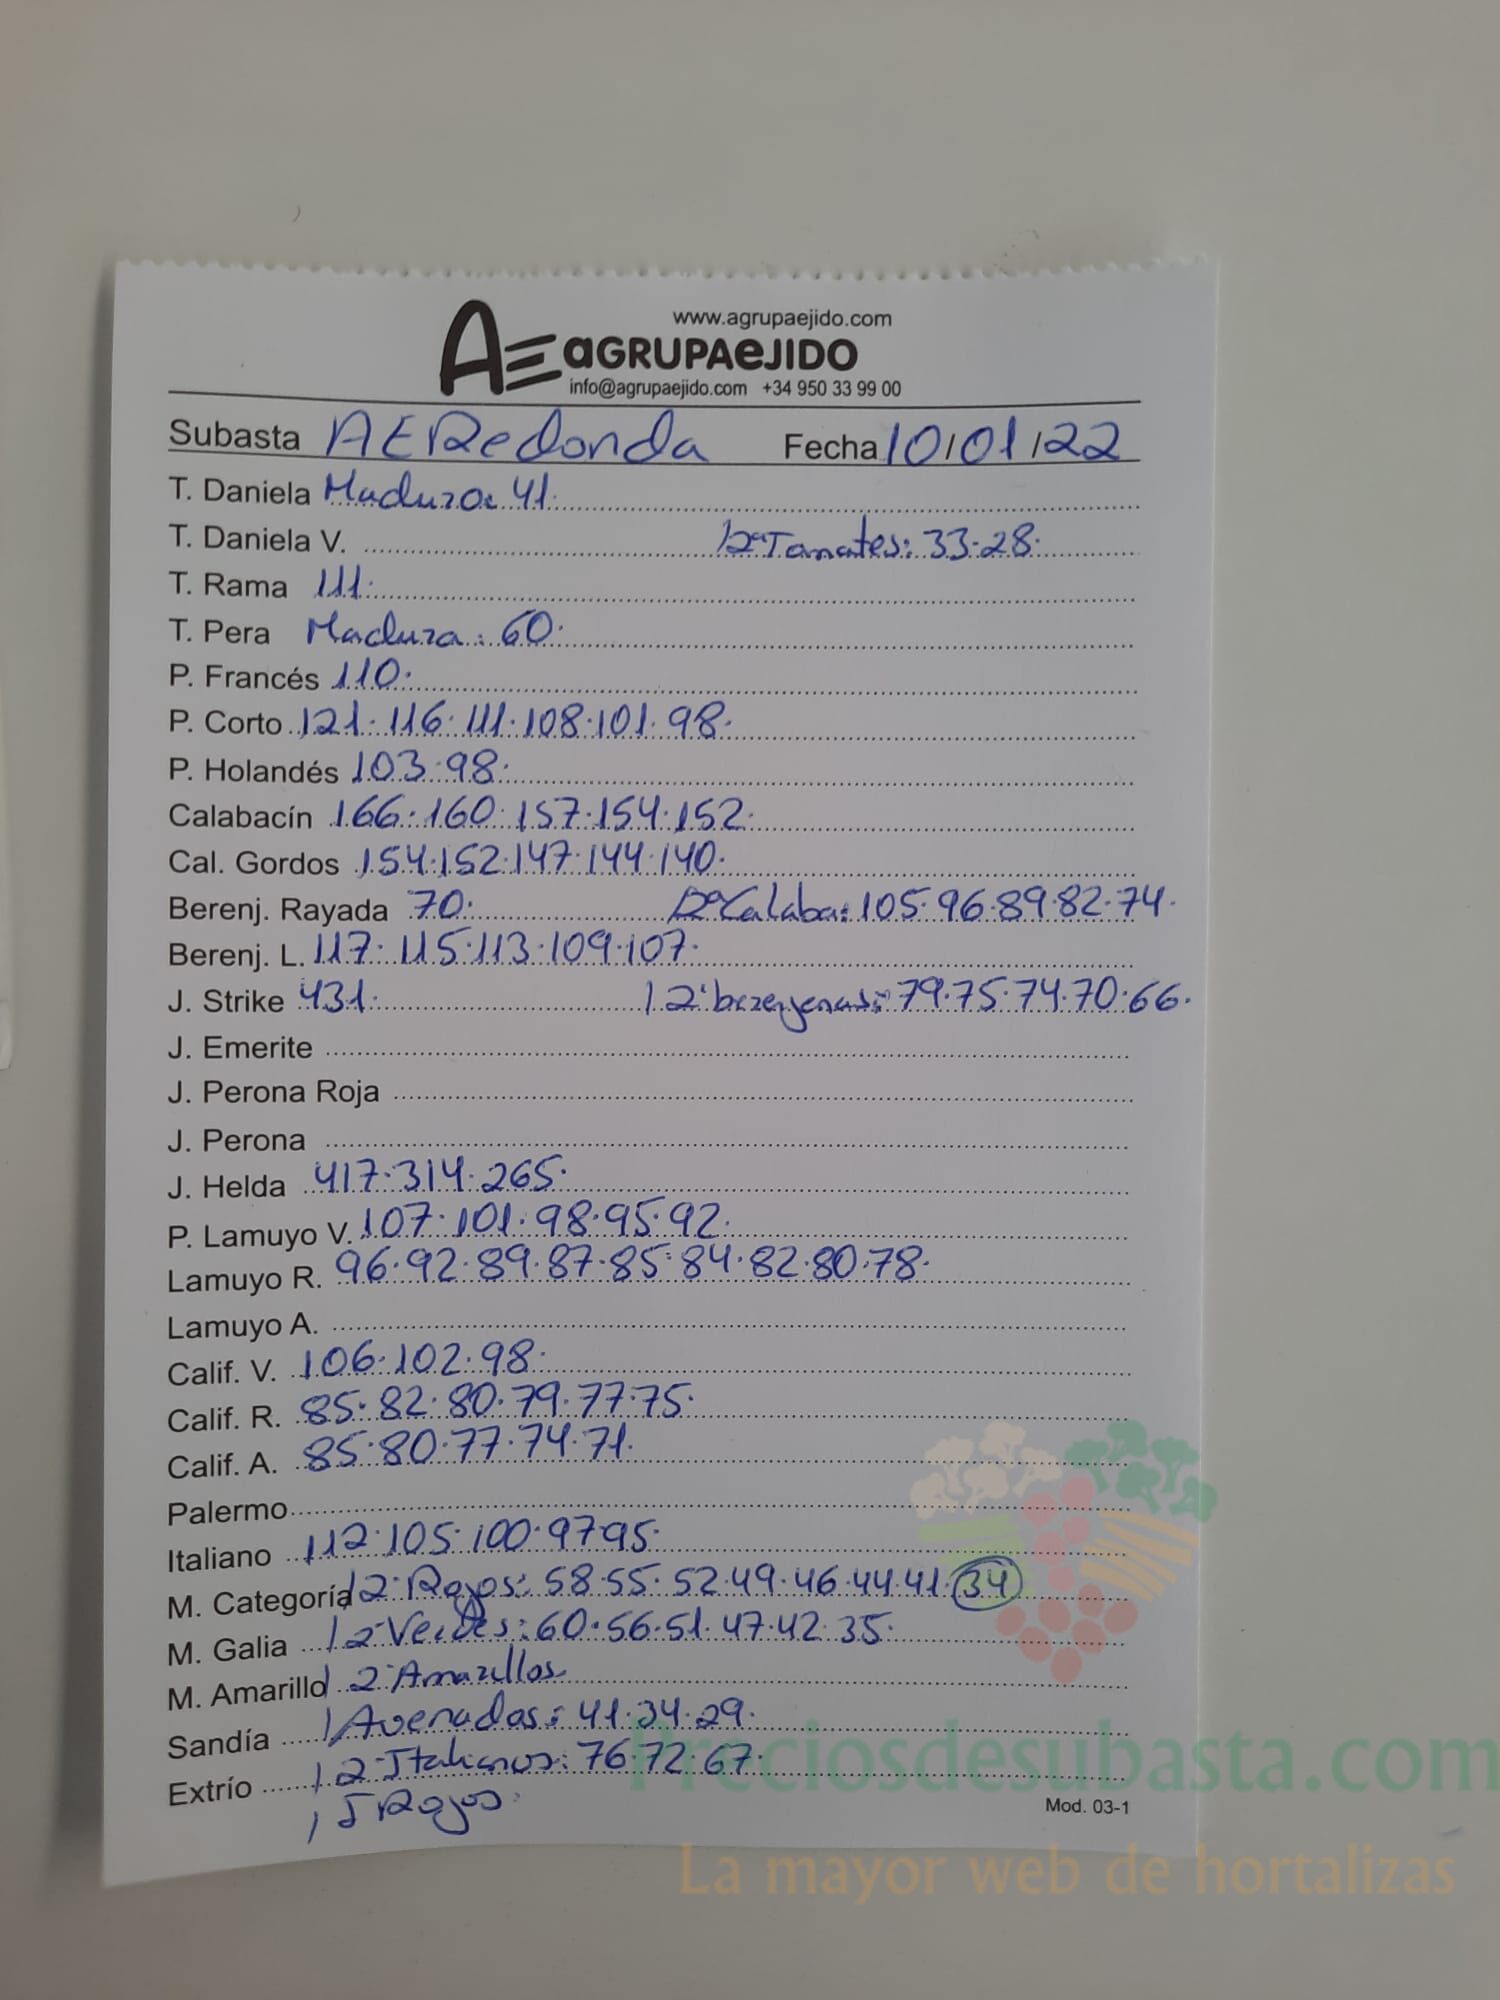 www.agrupaejido.com
AE aGRUPAeJIDO
info@agrupaejido.com +34 950 33 99 00
Subasta AERedonda Fecha 10/01/22
T. Daniela Maduro: 41.
T. Daniela V. 2ª Tomates: 33.28.
T. Rama 111.
T. Pera Madura: 60.
P. Francés 110.
P. Corto 121.116.111.108.101.98.
P. Holandés 103.98.
Calabacín 166.160.157.154.152.
Cal. Gordos 154.152.147.144.140.
Berenj. Rayada 70. 2ª Calaba: 105.96.89.82.74.
Berenj. L. 117.115.113.109.107.
J. Strike 431. 2ª berenjenas: 79.75.74.70.66.
J. Emerite
J. Perona Roja
J. Perona
J. Helda 417.314.265.
P. Lamuyo V. 107.101.98.95.92.
Lamuyo R. 96.92.89.87.85.84.82.80.78.
Lamuyo A.
Calif. V. 106.102.98.
Calif. R. 85.82.80.79.77.75.
Calif. A. 85.80.77.74.71.
Palermo
Italiano 112.105.100.97.95.
M. Categoría 2ª Rojos: 58.55.52.49.46.44.41.34
M. Galia 2ª Verdes: 60.56.51.47.42.35.
M. Amarillo 2ª Amarillos
Sandía Avenados: 41.34.29.
Extrío 2ª Italianos: 76.72.67.
Rojos
Mod. 03-1
Preciosdesubasta.com
La mayor web de hortalizas